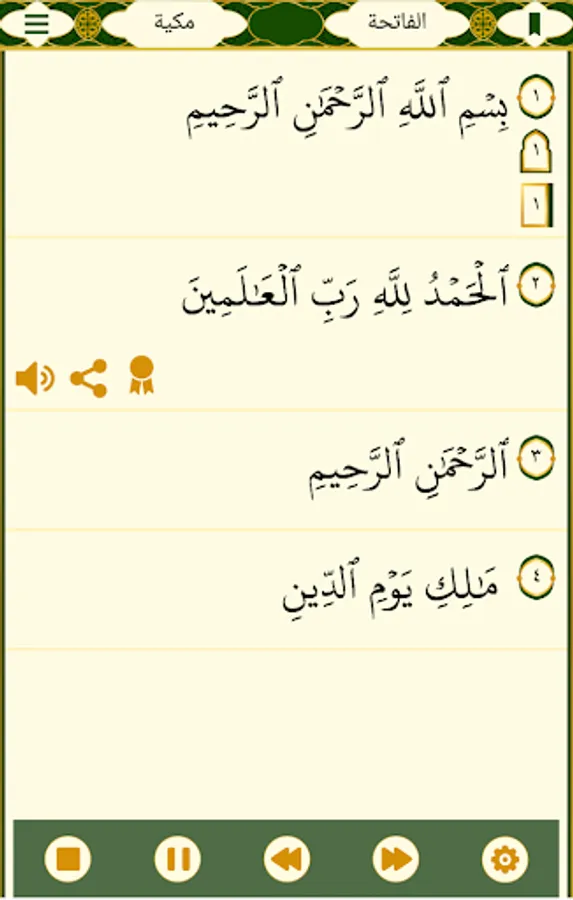 الفاتحة
مكية
١
بِسْمِ ٱللَّهِ ٱلرَّحْمَٰنِ ٱلرَّحِيمِ
١
١
٢
ٱلْحَمْدُ لِلَّهِ رَبِّ ٱلْعَٰلَمِينَ
٣
ٱلرَّحْمَٰنِ ٱلرَّحِيمِ
٤
مَٰلِكِ يَوْمِ ٱلدِّينِ